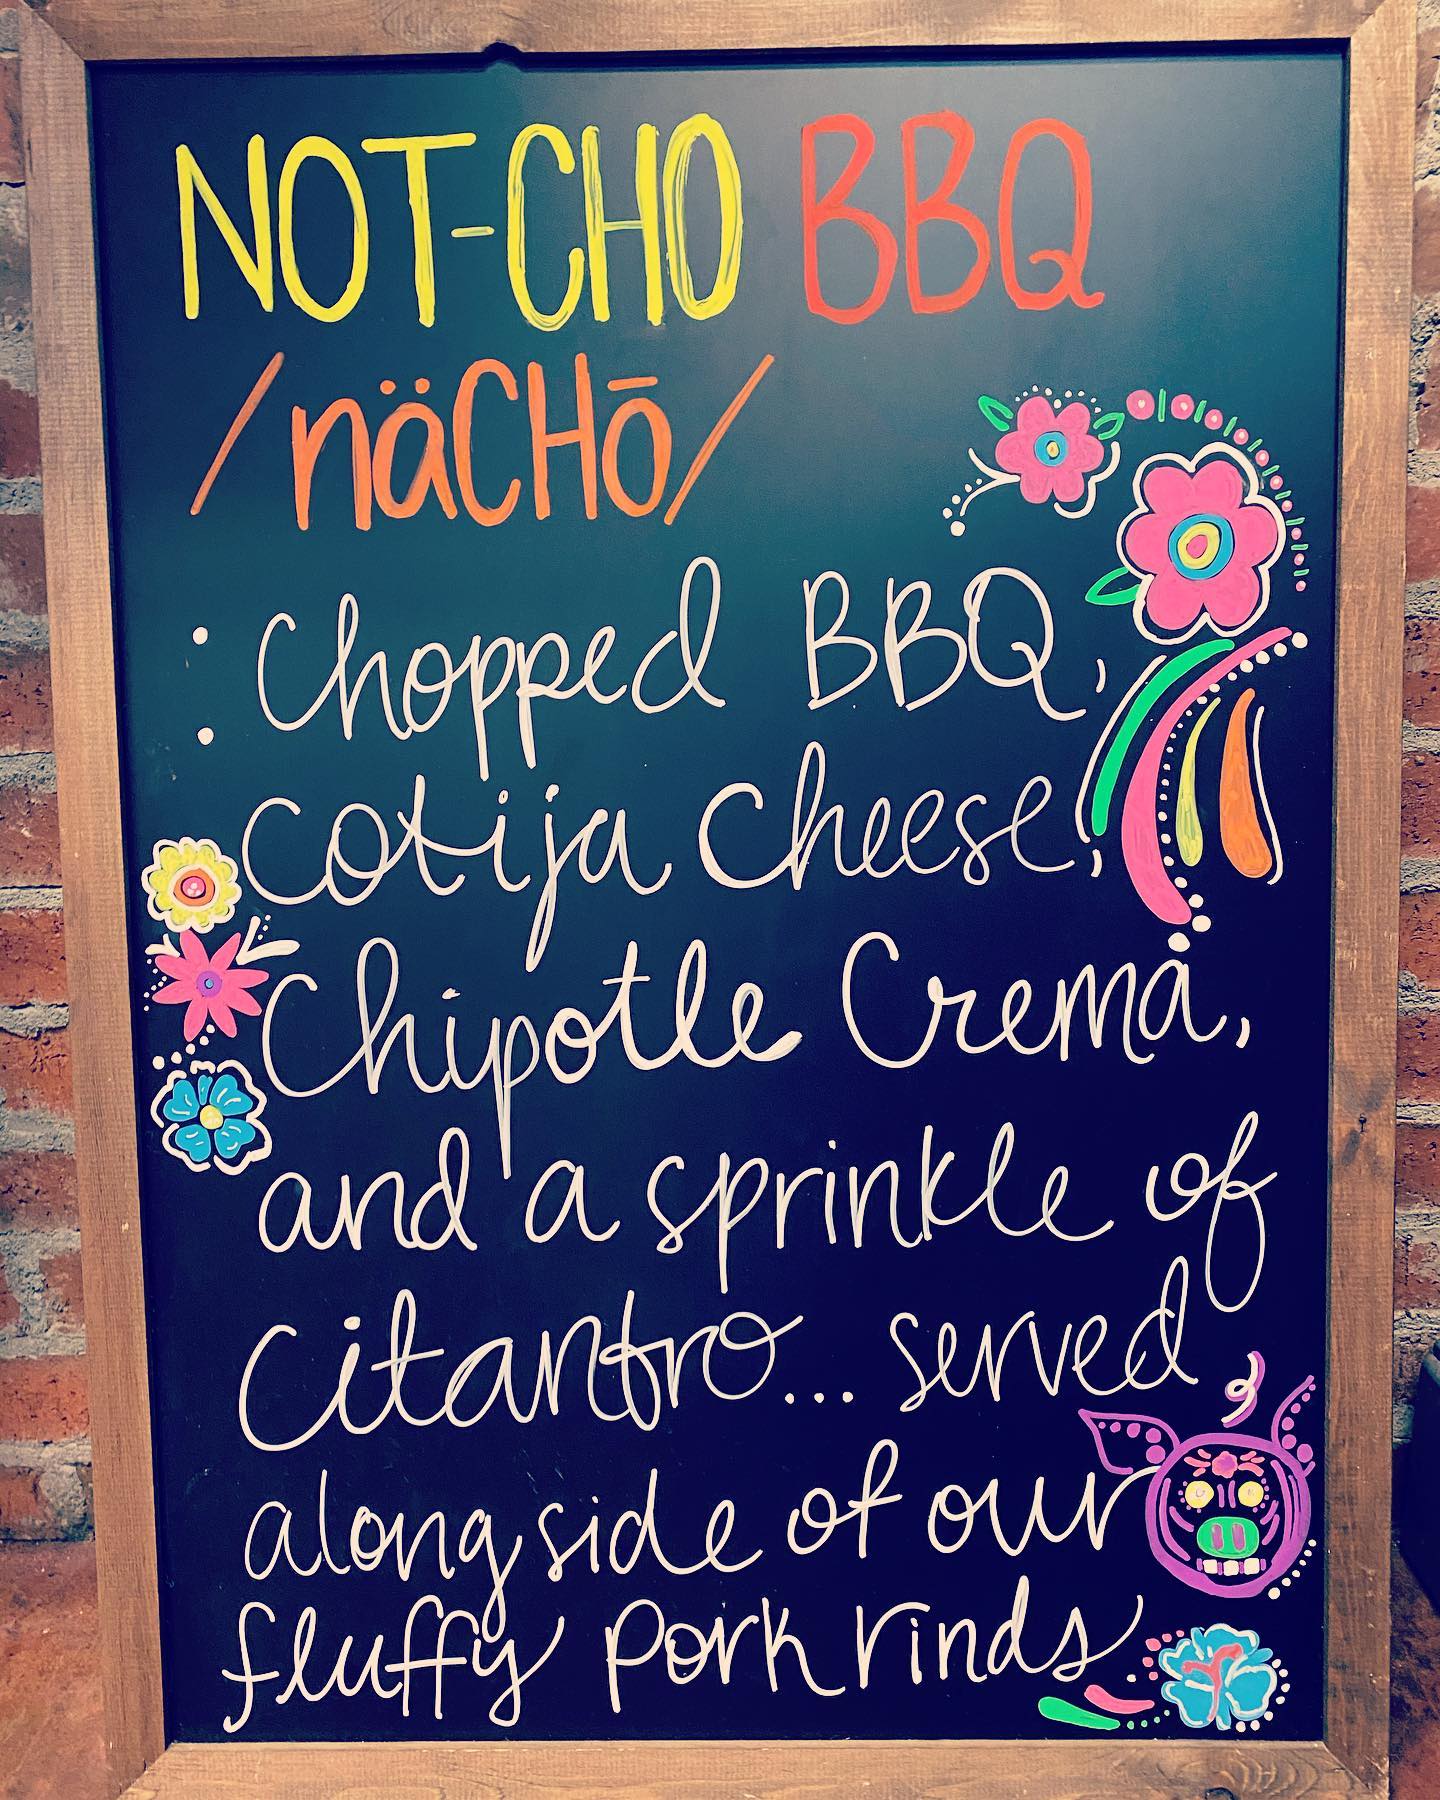 NOT-CHO BBQ
/näCHō/
: Chopped BBQ,
Cotija Cheese,
Chipotle Crema,
and a sprinkle of
Citantro... served
alongside of our
fluffy pork rinds